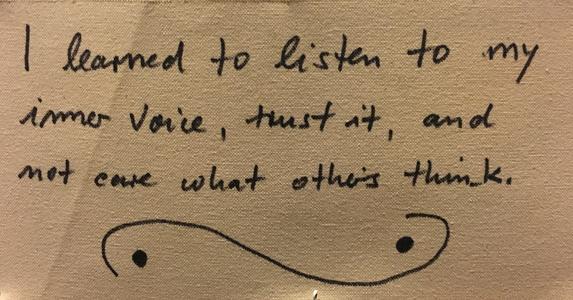 I learned to listen to my
inner voice, trust it, and
not care what others think.